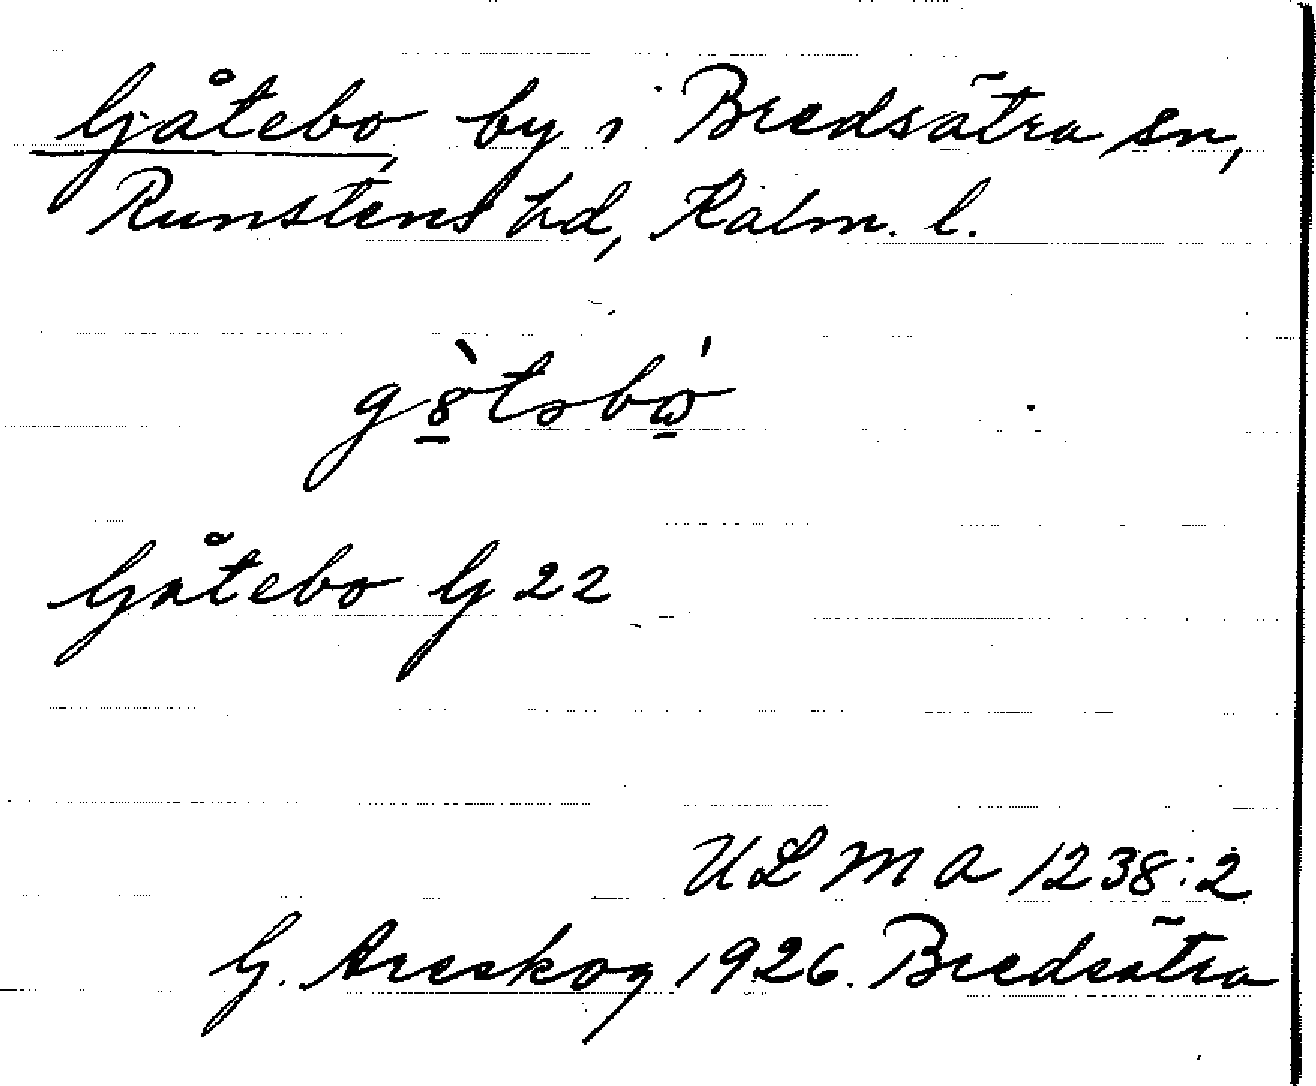 Gåtebo, by i Bredsätra sn,
Runstens hd, Kalm. l.
Gåtebo G 22
ULMA 1238:2
G. Areskog 1926. Bredsätra